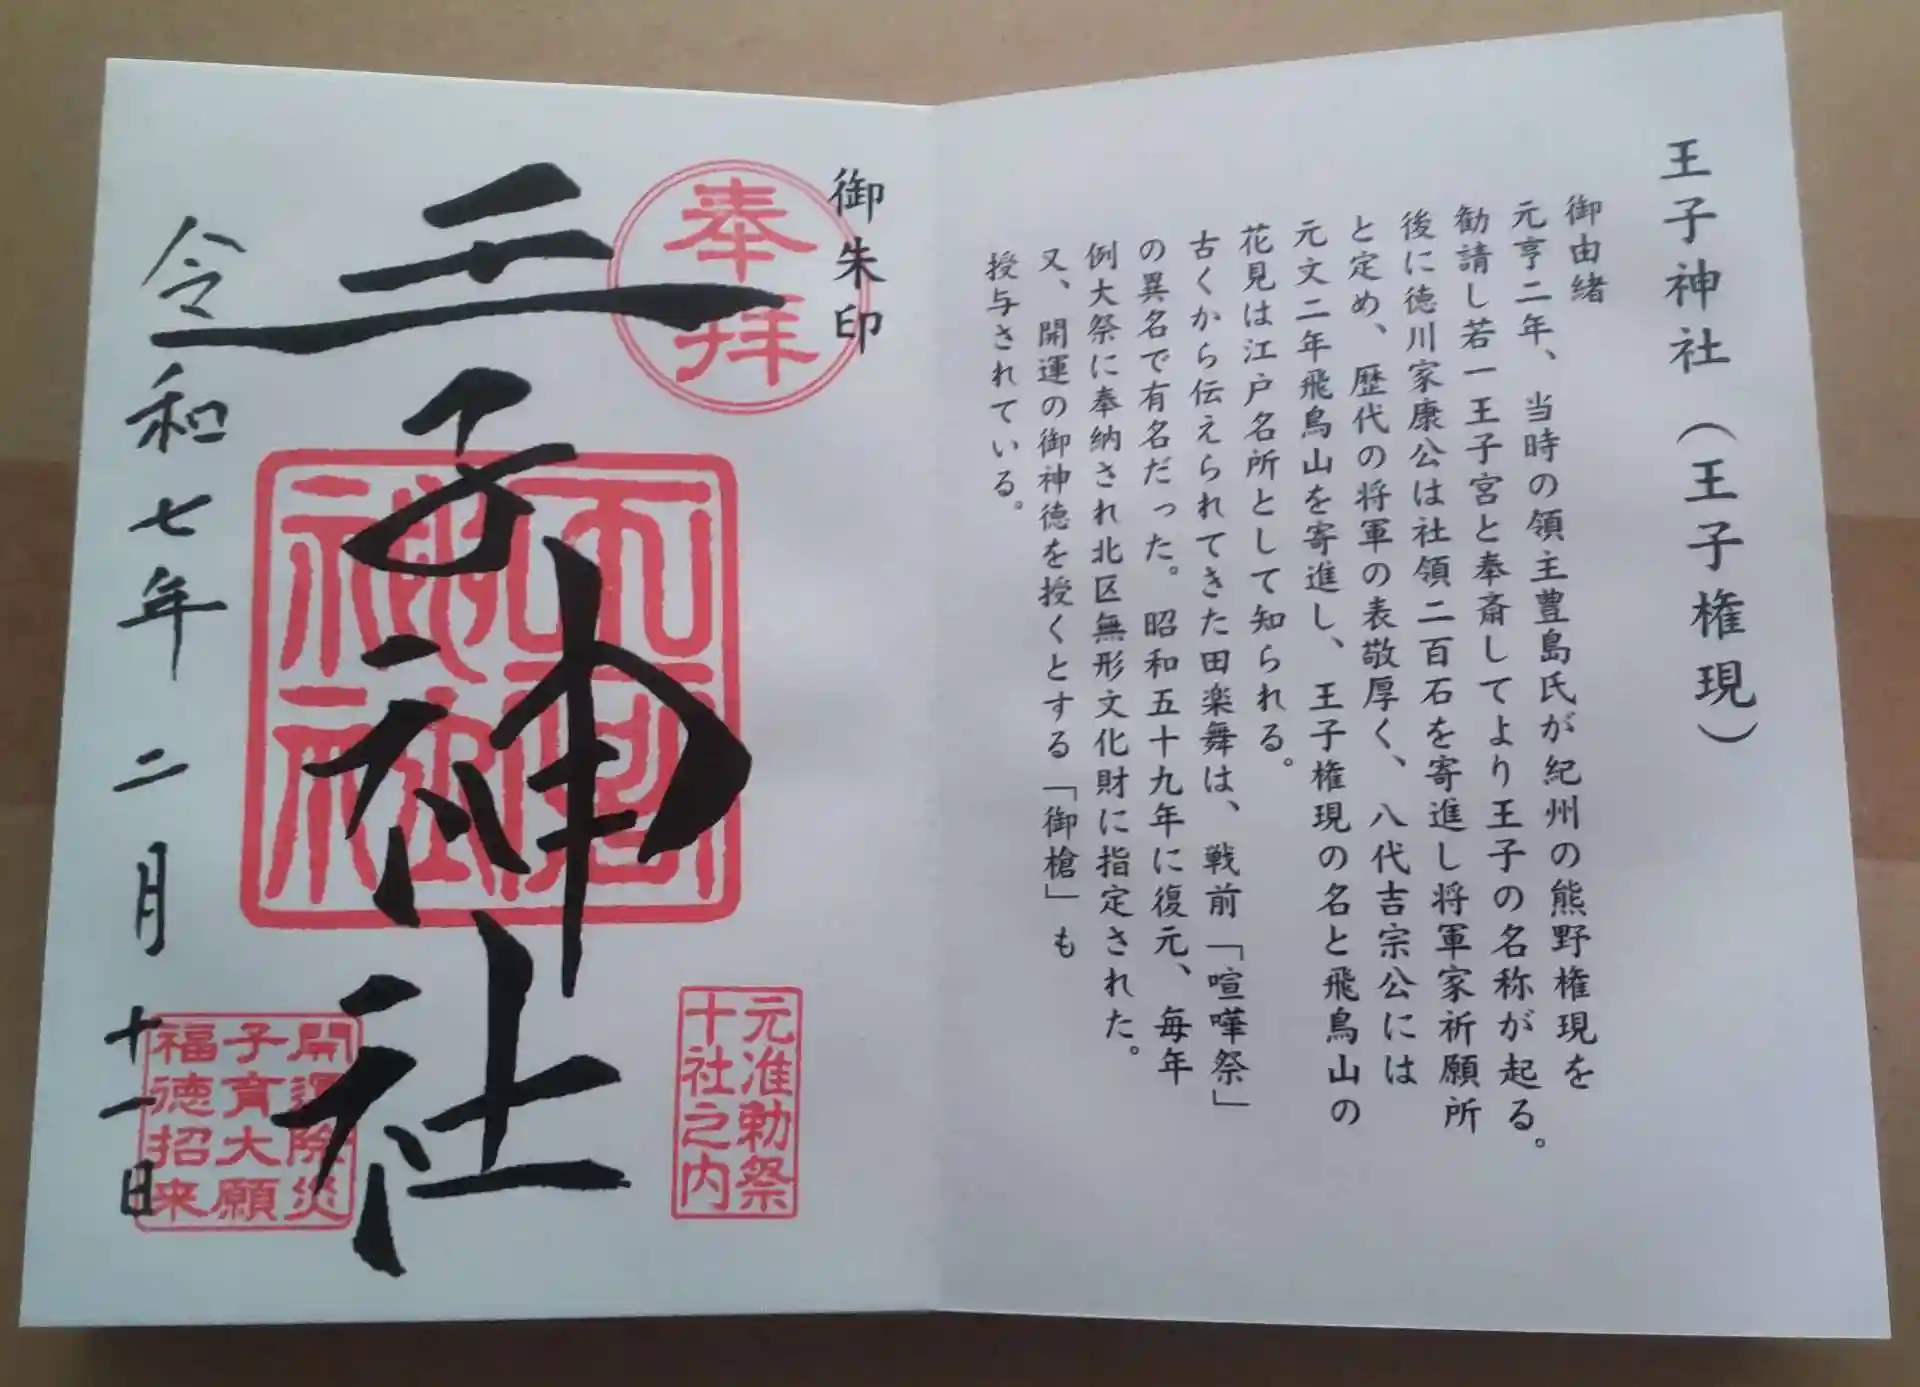 王子神社（王子権現）
御由緒
元亨二年、当時の領主豊島氏が紀州の熊野権現を
勧請し若一王子宮と奉斎してより王子の名称が起る。
後に徳川家康公は社領二百石を寄進し将軍家祈願所
と定め、歴代の将軍の表敬厚く、八代吉宗公には
元文二年飛鳥山を寄進し、王子権現の名と飛鳥山の
花見は江戸名所として知られる。
古くから伝えられてきた田楽舞は、戦前「喧嘩祭」
の異名で有名だった。昭和五十九年に復元、毎年
例大祭に奉納され北区無形文化財に指定された。
又、開運の御神徳を授くとする「御槍」も
授与されている。
御朱印
奉拝
王子神社
元准勅祭
十社之内
開運除災
子育大願
福徳招来
令和七年二月十一日